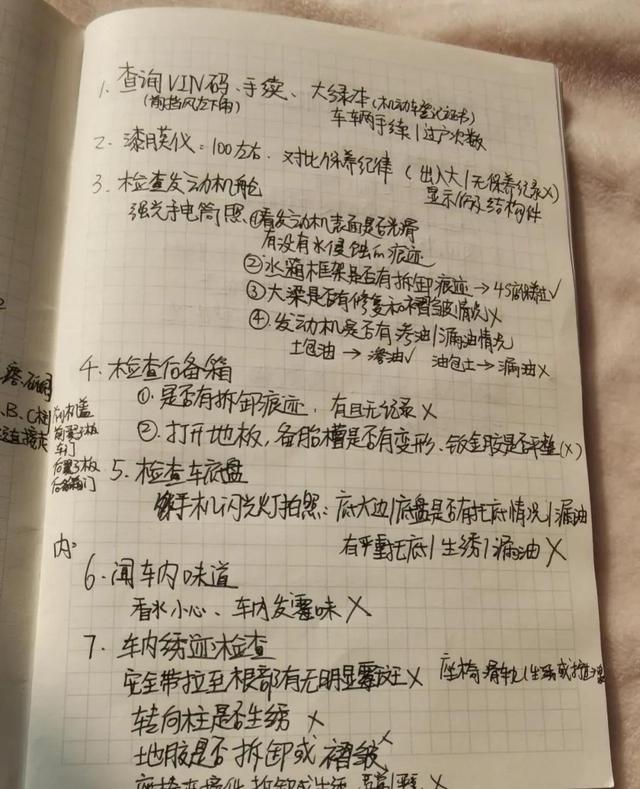 1. 查询VIN码、手续、大绿本(机动车登记证书)
(前挡风左下角)
车车两手续/过户次数
2. 漆膜仪:100左右. 对比保养纪律 (出入大/无保养纪录X)
显示伤及结构件
3. 检查发动机舱
强光手电筒照.①看发动机表面是否光滑
有没有水侵蚀的痕迹
②水箱框架是否有拆卸痕迹→4S店保养过✓
③大梁是否有修复和褶皱情况X
④发动机是否有渗油/漏油情况
土包油→渗油✓ 油包土→漏油X
4. 检查后备箱
①. 是否有拆卸痕迹, 有且无纪录X
②. 打开地板, 备胎槽是否有变形、钣金胶是否平整(X)
B、C柱
机盖
前翼子板
车门
后翼子板
后备箱门
5. 检查车底盘
手机闪光灯拍照: 底大边/底盘是否有托底情况/漏油
有严重托底/生绣/漏油X
内:
6. 闻车内味道
香水小心、车内发霉味X
7. 车内绣迹检查
安全带拉至根部有无明显霉斑X 座椅滑轨(生绣或
转向柱是否生绣 X
地胶是否拆卸或褶皱X